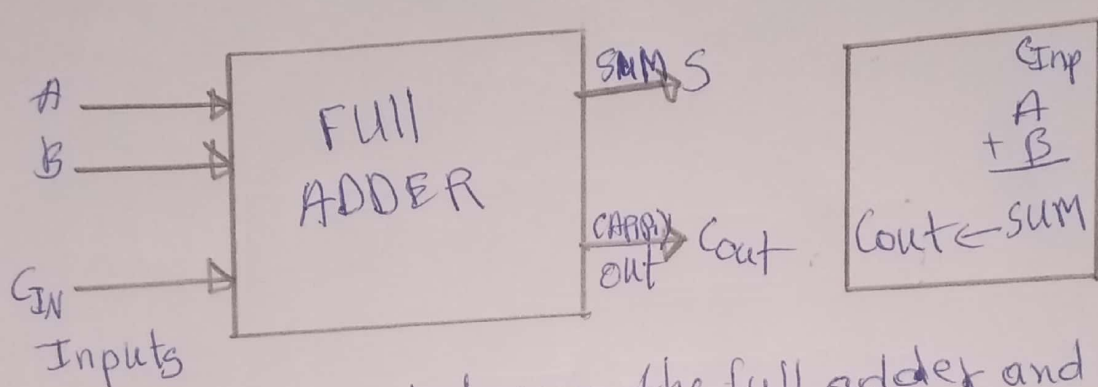 A
B
CIN
Inputs
FUll
ADDER
SUM S
CARRY
out
Cout
CInp
A
+ B
Cout ← SUM
the full adder and